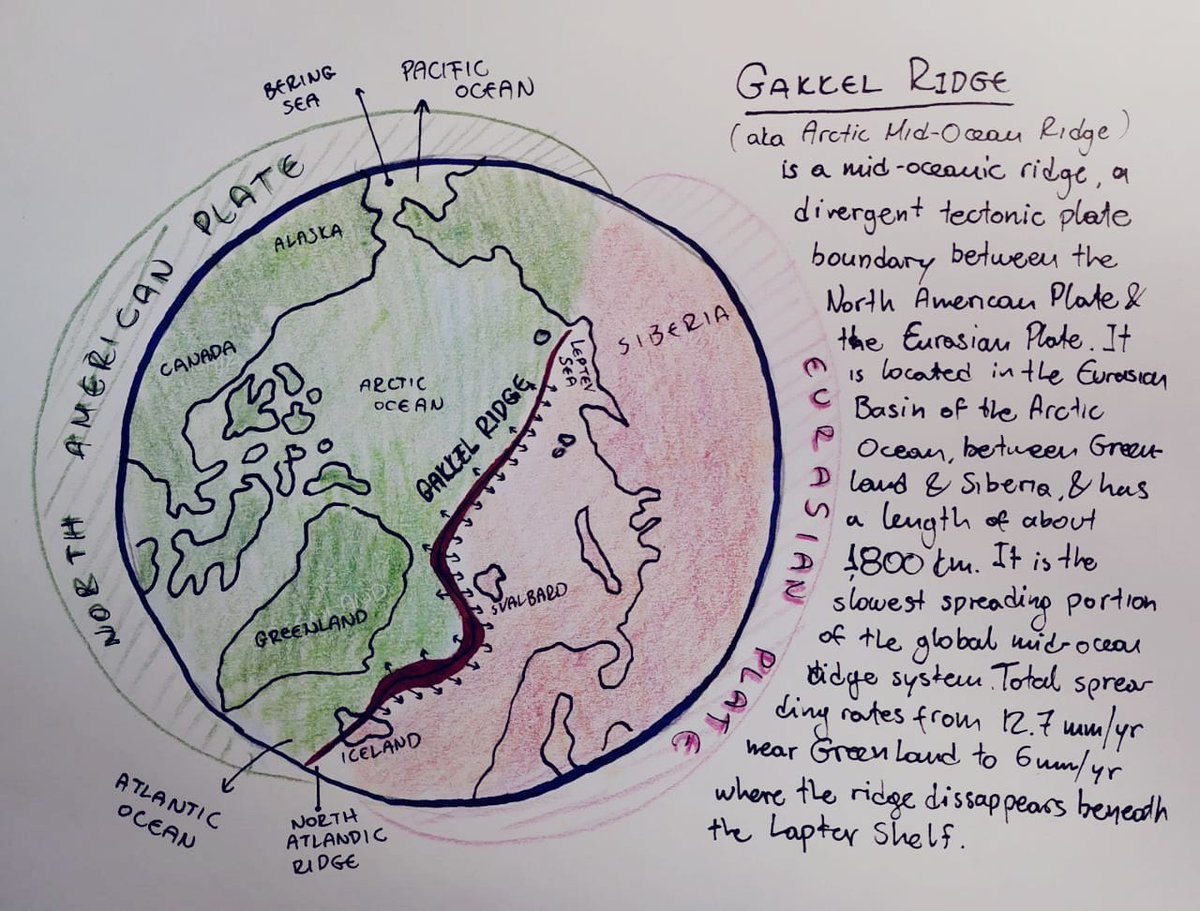 BERING
SEA
PACIFIC
OCEAN
NORTH AMERICAN PLATE
ALASKA
CANADA
ARCTIC
OCEAN
SIBERIA
LEPTEV
SEA
GAKKEL RIDGE
EURASIAN PLATE
SVALBARD
GREENLAND
ICELAND
ATLANTIC
OCEAN
NORTH
ATLANDIC
RIDGE
GAKKEL RIDGE
(aka Arctic Mid-Ocean Ridge)
is a mid-oceanic ridge, a
divergent tectonic plate
boundary between the
North American Plate &
the Eurasian Plate. It
is located in the Eurasian
Basin of the Arctic
Ocean, between Green-
land & Siberia, & has
a length of about
1,800 km. It is the
slowest spreading portion
of the global mid-ocean
ridge system. Total sprea-
ding rates from 12.7 mm/yr
near Greenland to 6mm/yr
where the ridge dissappears beneath
the Laptev Shelf.